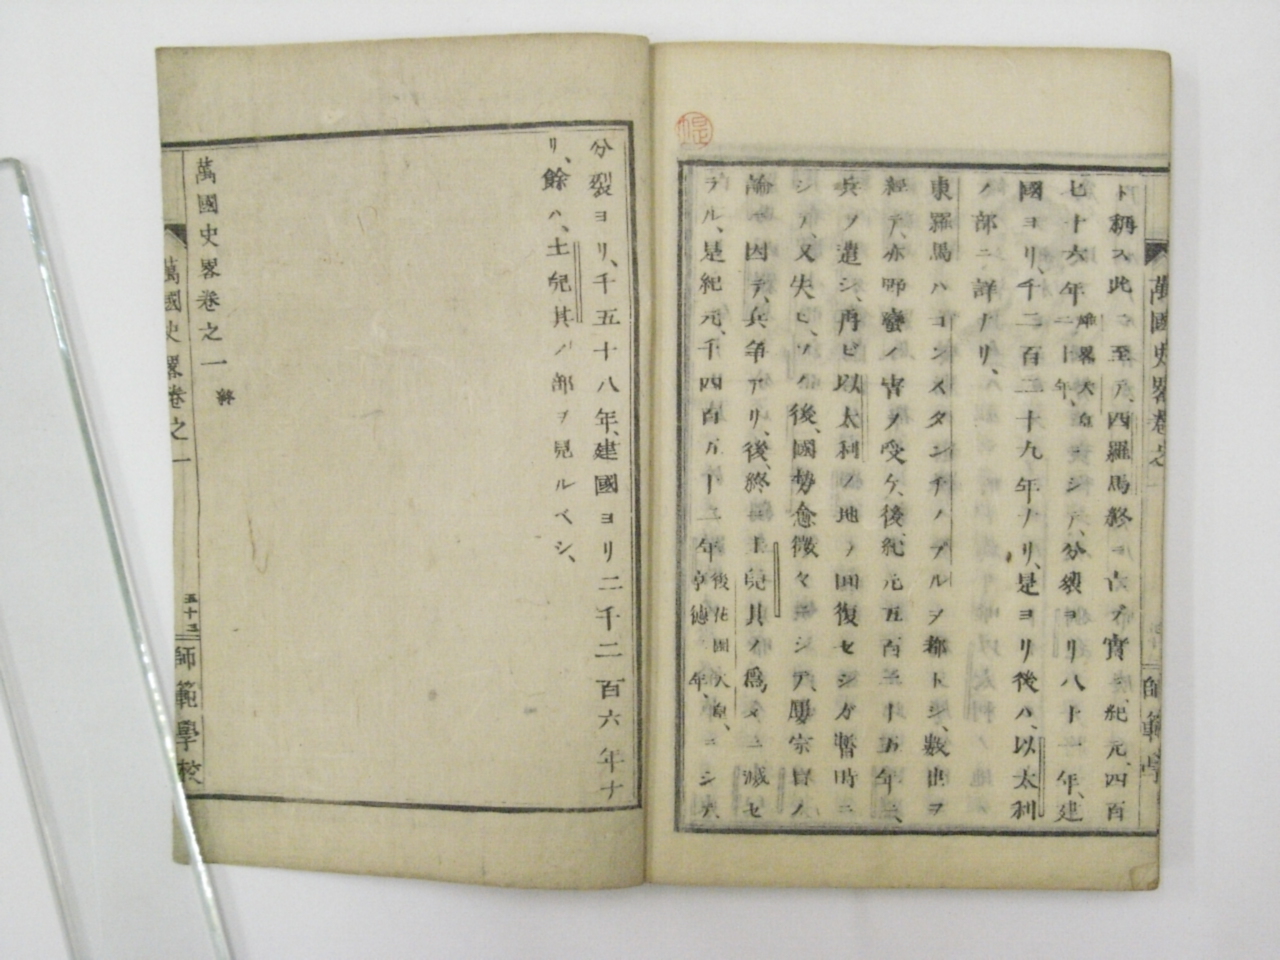 ト稱ス此ニ至テ、西羅馬終ニ亡ブ、實ニ紀元、四百
七十六年雄畧天皇二十年、ニシテ、分裂ヨリ八十一年、建
國ヨリ、千二百二十九年ナリ、是ヨリ後ハ、以太利
ノ部ニ詳ナリ、
東羅馬ハコンスタンチノプルヲ都トシ、數世ヲ
經テ、亦野蠻ノ害ヲ受ケ、後、紀元五百三十五年ニ、
兵ヲ遣シ、再ビ以太利ノ地ヲ回復セシガ暫時ニ
シテ、又失ヒ、ソノ後、國勢愈微々ニシテ、屢宗旨ノ
論ニ因テ、兵爭アリ、後、終ニ土兒其ノ爲メニ滅セ
ラル、是紀元、千四百五十三年後花園天皇、享德二年、ニシテ
萬國史畧卷之一
師範學
分裂ヨリ、千五十八年、建國ヨリ二千二百六年ナ
リ、餘ハ、土兒其ノ部ヲ見ルベシ、
萬國史畧卷之一 終
萬國史畧卷之一
五十三
師範學校